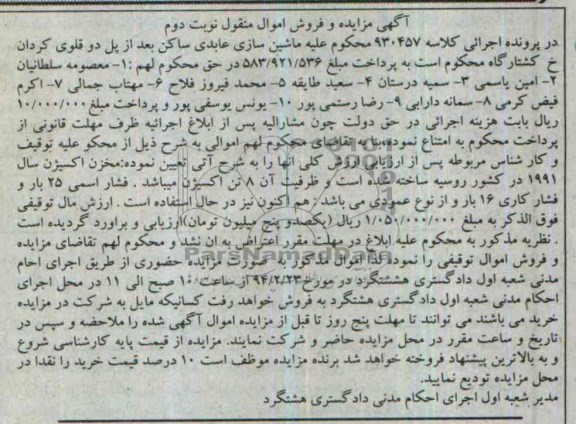 آگهی مزایده و فروش اموال منقول نوبت دوم
در پرونده اجرائی کلاسه ۹۳۰۴۵۷ محکوم علیه ماشین سازی عابدی ساکن بعد از پل دو قلوی کردان
خ کشتارگاه محکوم است به پرداخت مبلغ ۵۸۳/۹۲۱/۵۳۶ در حق محکوم لهم :۱- معصومه سلطانیان
۲- امین یاسمی ۳- سمیه درستان ۴- سعید طایقه ۵- محمد فیروز فلاح ۶- مهتاب جمالی ۷- اکرم
فیض کرمی ۸- سمانه دارابی ۹- رضا رستمی پور ۱۰- یونس یوسفی پور و پرداخت مبلغ ۱۰/۰۰۰/۰۰۰
ریال بابت هزینه اجرائی در حق دولت چون مشارالیه پس از ابلاغ اجرائیه ظرف مهلت قانونی از
پرداخت محکوم به امتناع نموده،بنا به تقاضای محکوم لهم اموالی به شرح ذیل از محکو علیه توقیف
و کار شناس مربوطه پس از ارزیابی ارزش کلی آنها را به شرح آتی تعیین نموده:مخزن اکسیژن سال
۱۹۹۱ در کشور روسیه ساخته شده است و ظرفیت آن ۸ تن اکسیژن میباشد . فشار اسمی ۲۵ بار و
فشار کاری ۱۶ بار و از نوع عمودی می باشد : هم اکنون نیز در حال استفاده است . ارزش مال توقیفی
فوق الذکر به مبلغ ۱/۰۵۰/۰۰۰/۰۰۰ ریال (یکصدو پنج میلیون تومان)ارزیابی و براورد گردیده است
. نظریه مذکور به محکوم علیه ابلاغ در مهلت مقرر اعتراض به ان نشد و محکوم لهم تقاضای مزایده
و فروش اموال توقیفی را نموده لذا اموال مذکور به صورت مزایده حضوری از طریق اجرای احام
مدنی شعبه اول دادگستری هششتگرد در مورخ۹۴/۲/۲۳ از ساعت ۱۰ صبح الی ۱۱ در محل اجرای
احکام مدنی شعبه اول دادگستری هشتگرد به فروش خواهد رفت کسانیکه مایل به شرکت در مزایده
خرید می باشند می توانند تا مهلت پنج روز تا قبل از مزایده اموال آگهی شده را ملاحضه و سپس در
تاریخ و ساعت مقرر در محل مزایده حاضر و شرکت نمایند. مزایده از قیمت پایه کارشناسی شروع
و به بالاترین پیشنهاد فروخته خواهد شد برنده مزایده موظف است ۱۰ درصد قیمت خرید را نقدا در
محل مزایده تودیع نمایید.
مدیر شعبه اول اجرای احکام مدنی دادگستری هشتگرد
ParsNamadData